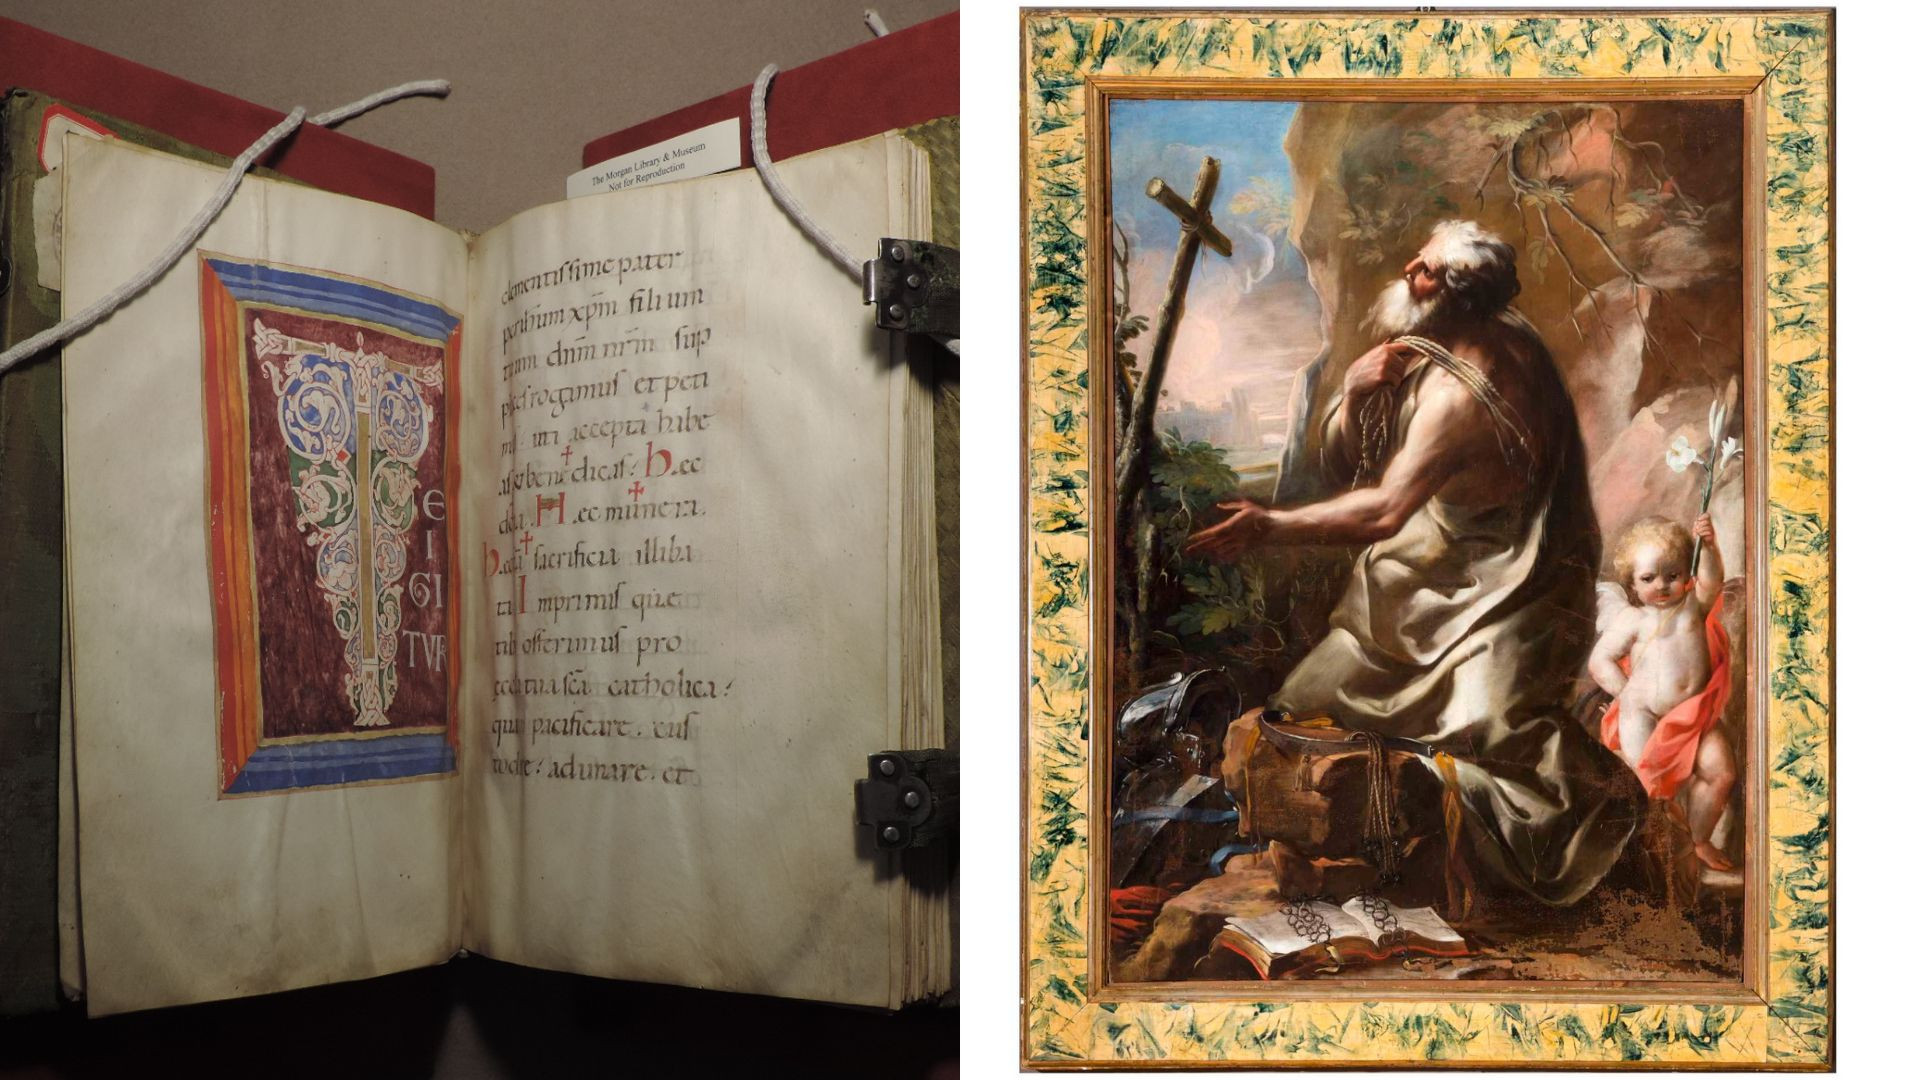 The Morgan Library & Museum
Not for Reproduction
TE
I
GI
TVR
clementissime pater
per ihum xp̄m filium
tuum dn̄m nr̄m sup
plices rogamus et peti
mus uti accepta habe
as et bene✝dicas. Hec
dona. Hec mu✝nera.
Hec sc̄a✝ sacrificia illiba
ta Imprimis que
tibi offerimus pro
eccl̄a tua sc̄a catholica:
quā pacificare. cus
todire: adunare. et